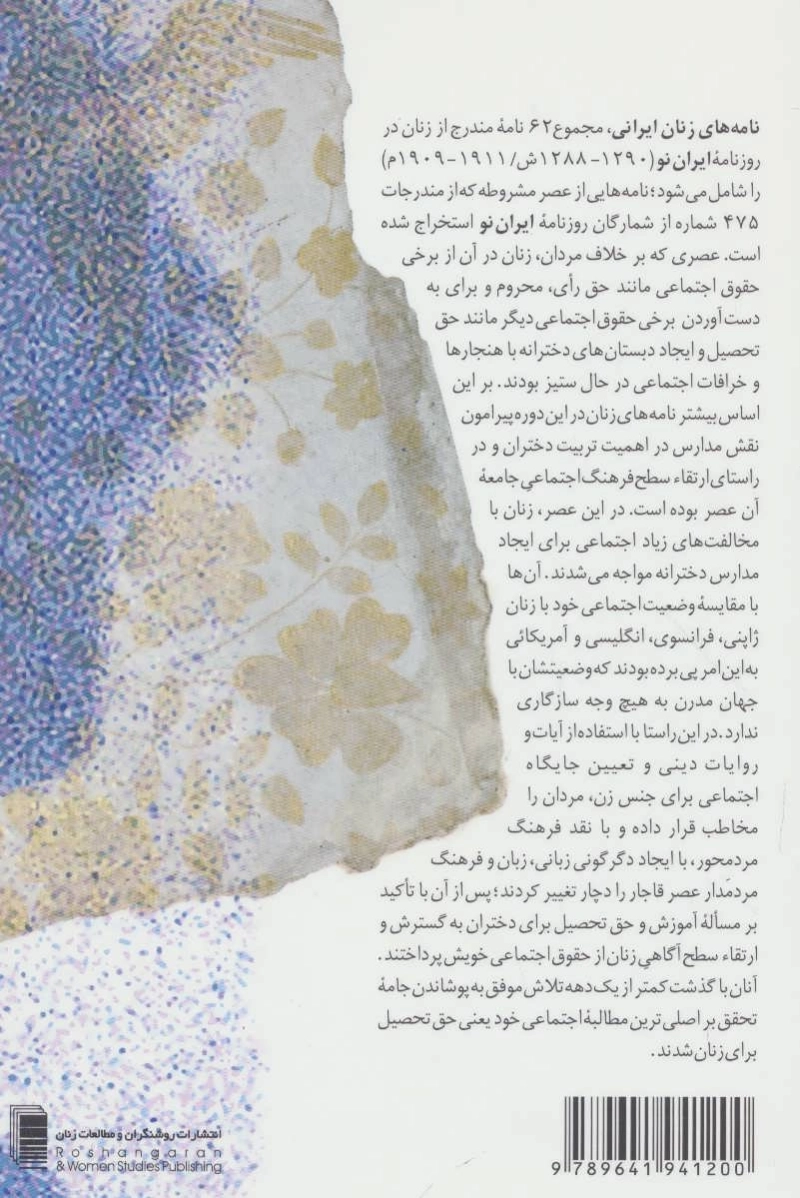 نامه‌های زنان ایرانی، مجموع ۶۲ نامهٔ مندرج از زنان در
روزنامهٔ ایران نو (۱۲۹۰-۱۲۸۸ش/۱۹۱۱-۱۹۰۹م)
را شامل می‌شود؛ نامه‌هایی از عصر مشروطه که از مندرجات
۴۷۵ شماره از شمارگان روزنامهٔ ایران نو استخراج شده
است. عصری که بر خلاف مردان، زنان در آن از برخی
حقوق اجتماعی مانند حق رأی، محروم و برای به
دست آوردن برخی حقوق اجتماعی دیگر مانند حق
تحصیل و ایجاد دبستان‌های دخترانه با هنجارها
و خرافات اجتماعی در حال ستیز بودند. بر این
اساس بیشتر نامه‌های زنان در این دوره پیرامون
نقش مدارس در اهمیت تربیت دختران و در
راستای ارتقاء سطح فرهنگ اجتماعیِ جامعهٔ
آن عصر بوده است. در این عصر، زنان با
مخالفت‌های زیاد اجتماعی برای ایجاد
مدارس دخترانه مواجه می‌شدند. آن‌ها
با مقایسهٔ وضعیت اجتماعی خود با زنان
ژاپنی، فرانسوی، انگلیسی و آمریکائی
به این امر پی برده بودند که وضعیتشان با
جهان مدرن به هیچ وجه سازگاری
ندارد. در این راستا با استفاده از آیات و
روایات دینی و تعیین جایگاه
اجتماعی برای جنس زن، مردان را
مخاطب قرار داده و با نقد فرهنگ
مردمحور، با ایجاد دگرگونی زبانی، زبان و فرهنگ
مردمَدار عصر قاجار را دچار تغییر کردند؛ پس از آن با تأکید
بر مسألهٔ آموزش و حق تحصیل برای دختران به گسترش و
ارتقاء سطح آگاهیِ زنان از حقوق اجتماعی خویش پرداختند.
آنان با گذشت کمتر از یک دهه تلاش موفق به پوشاندن جامهٔ
تحقق بر اصلی‌ترین مطالبهٔ اجتماعی خود یعنی حق تحصیل
برای زنان شدند.
انتشارات روشنگران و مطالعات زنان
Roshangaran
& Women Studies Publishing
9 789641 941200